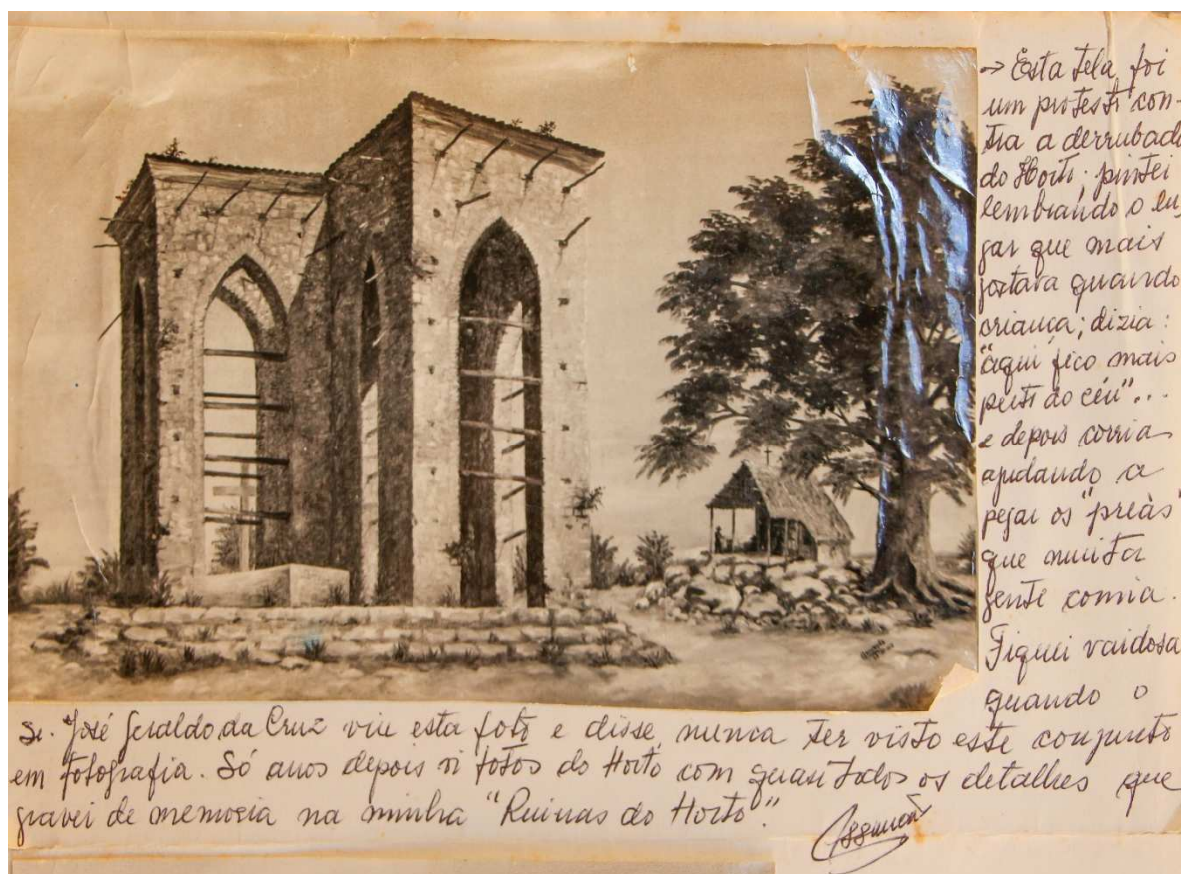 → Esta tela foi
um protesto con-
tra a derrubada
do Horto. pintei
lembrando o lu-
gar que mais
gostava quando
criança; dizia:
"aqui fico mais
perto do céu"...
e depois corria
ajudando a
pegar os "preás"
que muita
gente comia.
Fiquei vaidosa
quando o
Sr. José Geraldo da Cruz viu esta foto e disse nunca ter visto este conjunto
em fotografia. Só anos depois vi fotos do Horto com quasi todos os detalhes que
gravei de memoria na minha "Ruinas do Horto".
Assunção